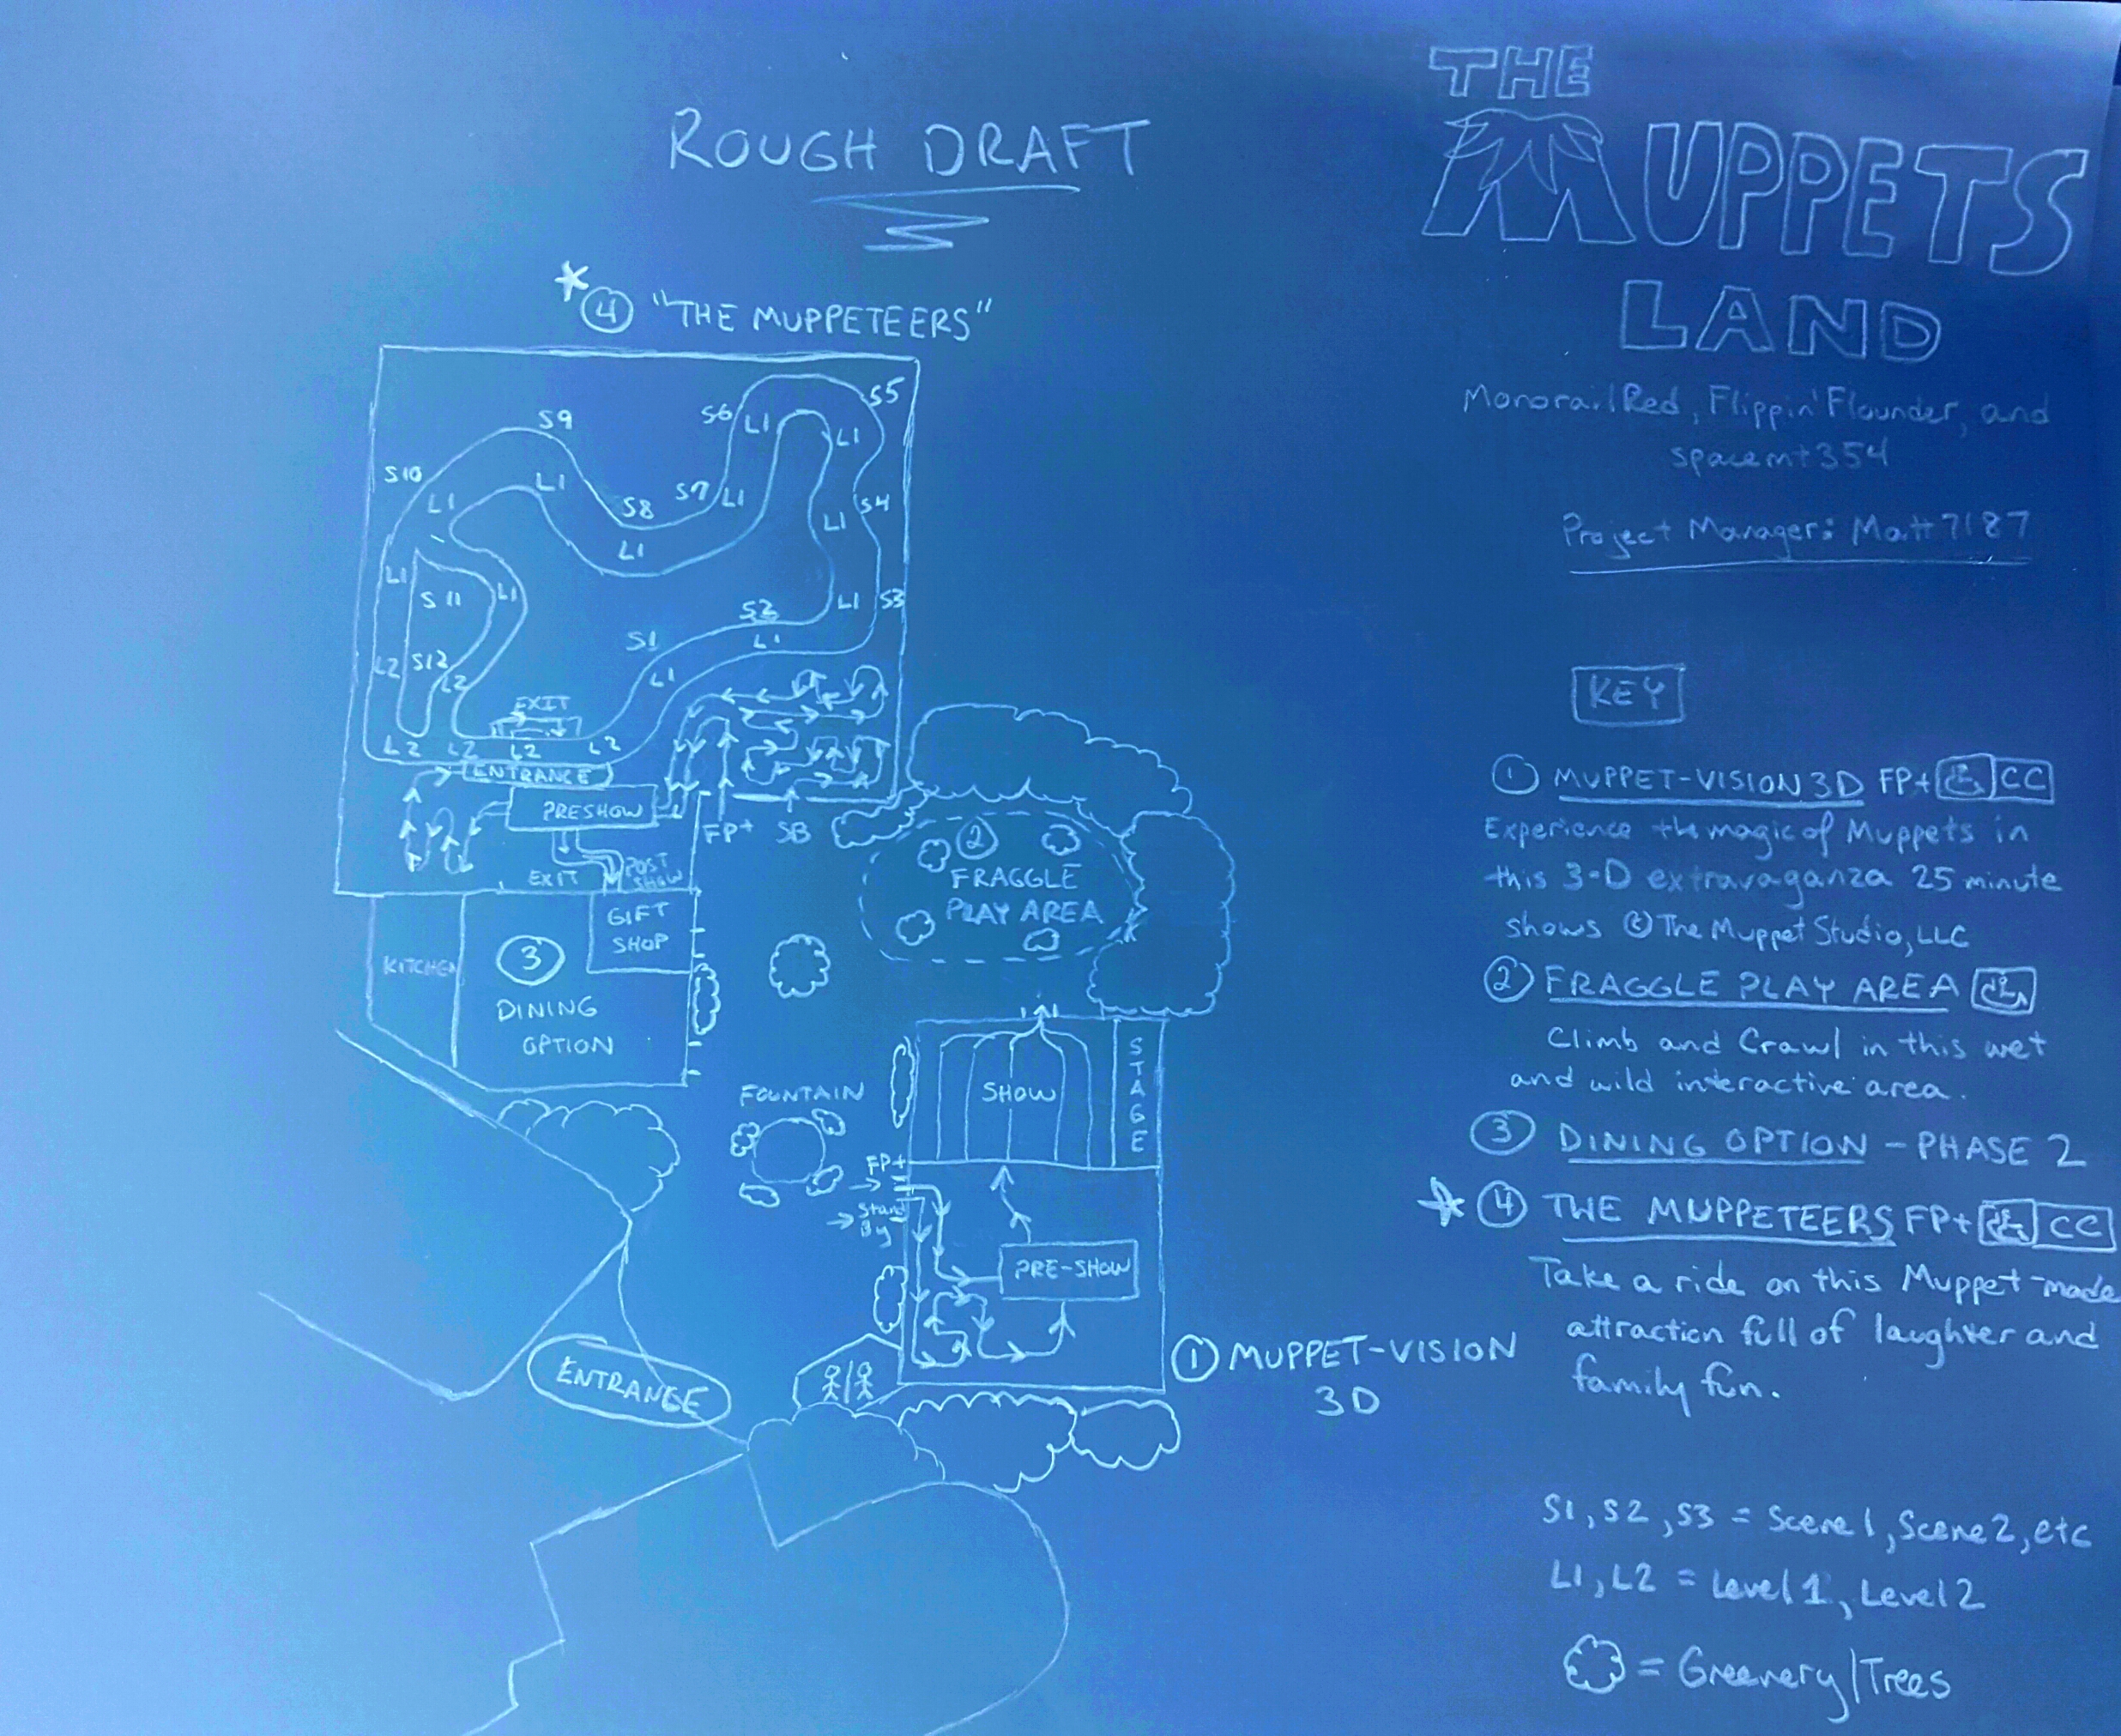 ROUGH DRAFT
THE
MUPPETS
LAND
MonorailRed, Flippin'Flounder, and
spacemt354
Project Manager: Matt7187
* 4 "THE MUPPETEERS"
S5
S6
L1
L1
S9
S10
L1
L1
S7
L1
S8
L1
S4
L1
L1
S11
L1
S2
L1
S3
S1
L1
L2
S12
L2
L1
EXIT
L2
L2
L2
L2
ENTRANCE
PRESHOW
FP+
SB
EXIT
POST
SHOW
GIFT
SHOP
KITCHEN
3
DINING
OPTION
2
FRAGGLE
PLAY AREA
FOUNTAIN
SHOW
STAGE
FP+
Stand
By
PRE-SHOW
ENTRANCE
1 MUPPET-VISION
3D
KEY
1 MUPPET-VISION 3D FP+ CC
Experience the magic of Muppets in
this 3-D extravaganza 25 minute
shows © The Muppet Studio, LLC
2 FRAGGLE PLAY AREA
Climb and Crawl in this wet
and wild interactive area.
3 DINING OPTION - PHASE 2
* 4 THE MUPPETEERS FP+ CC
Take a ride on this Muppet-made
attraction full of laughter and
family fun.
S1, S2, S3 = Scene 1, Scene 2, etc
L1, L2 = Level 1, Level 2
= Greenery/Trees